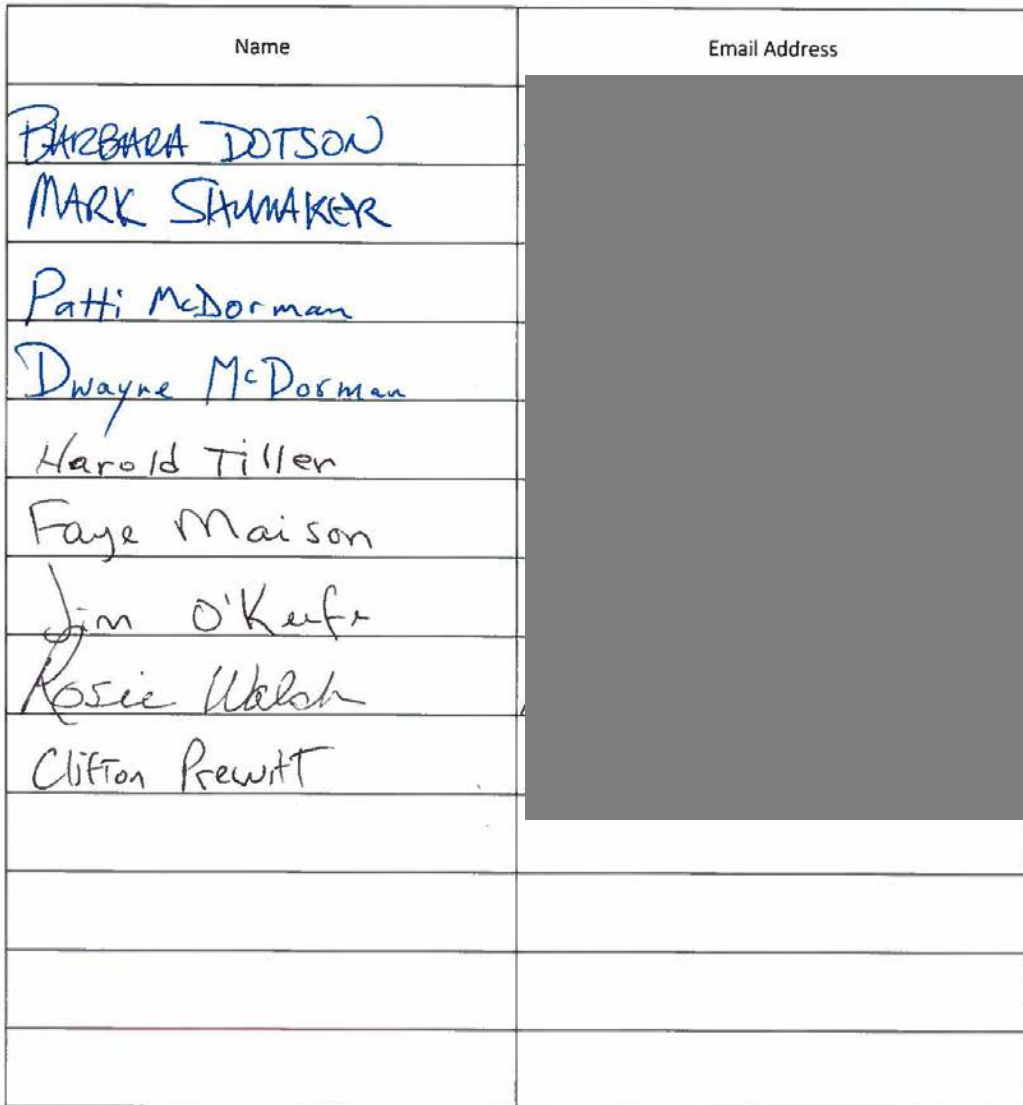 Name Email Address
BARBARA DOTSON
MARK SHUMAKER
Patti McDorman
Dwayne McDorman
Harold Tiller
Faye Maison
Jim O'Keefe
Rosie Walsh
Clifton Prewitt